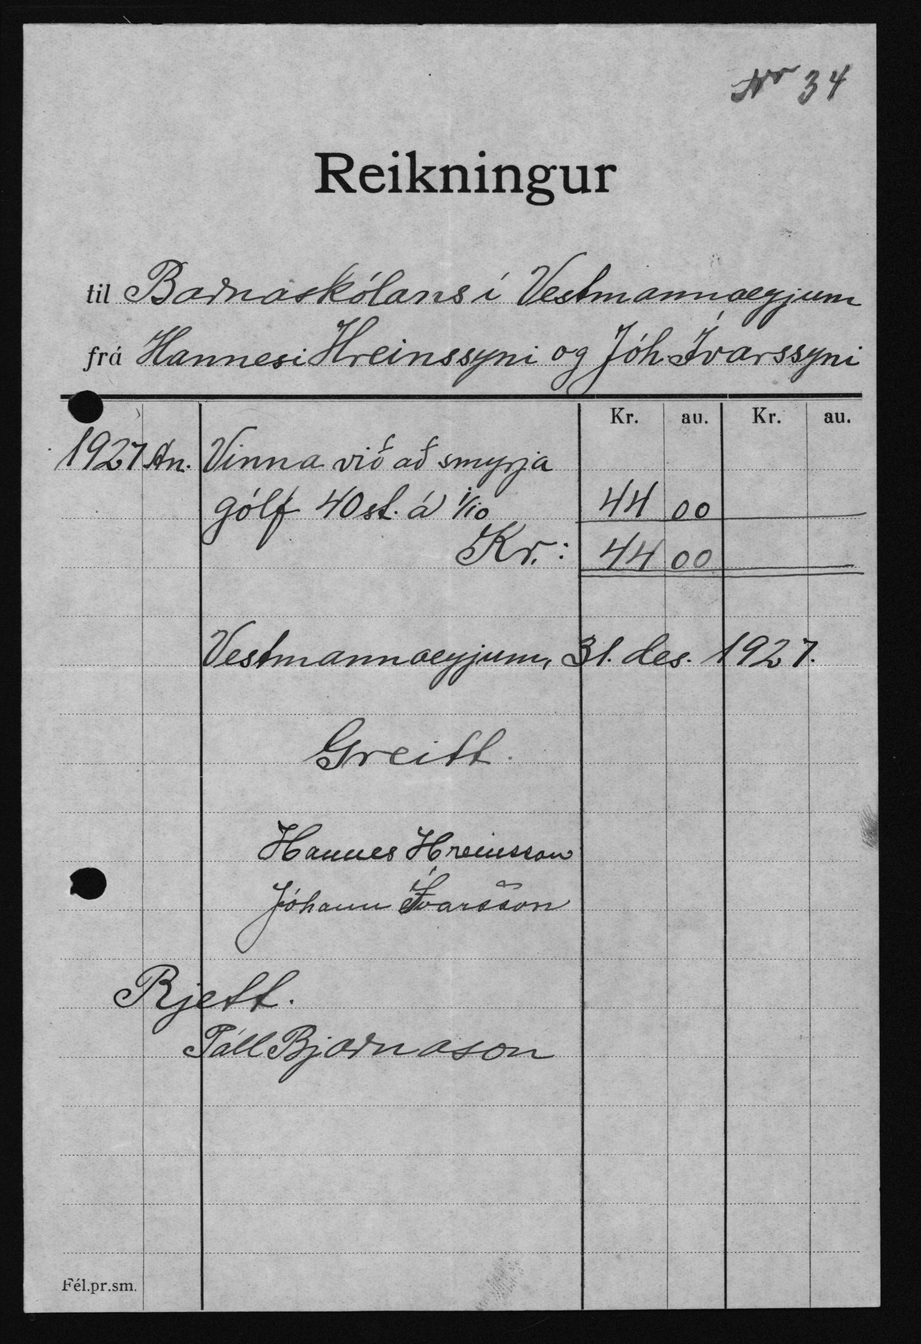 Nr 34
Reikningur
til Barnaskólans í Vestmannaeyjum
frá Hannesi Hreinssyni og Jóh Ívarssyni
Kr. au. Kr. au.
1927 Án. Vinna við að smyrja
gólf 40 st. á 1/10 44 00
Kr.: 44 00
Vestmannaeyjum, 31. des. 1927.
Greitt.
Hannes Hreinsson
Jóhann Ívarsson
Rjett.
Páll Bjarnason
Fél.pr.sm.